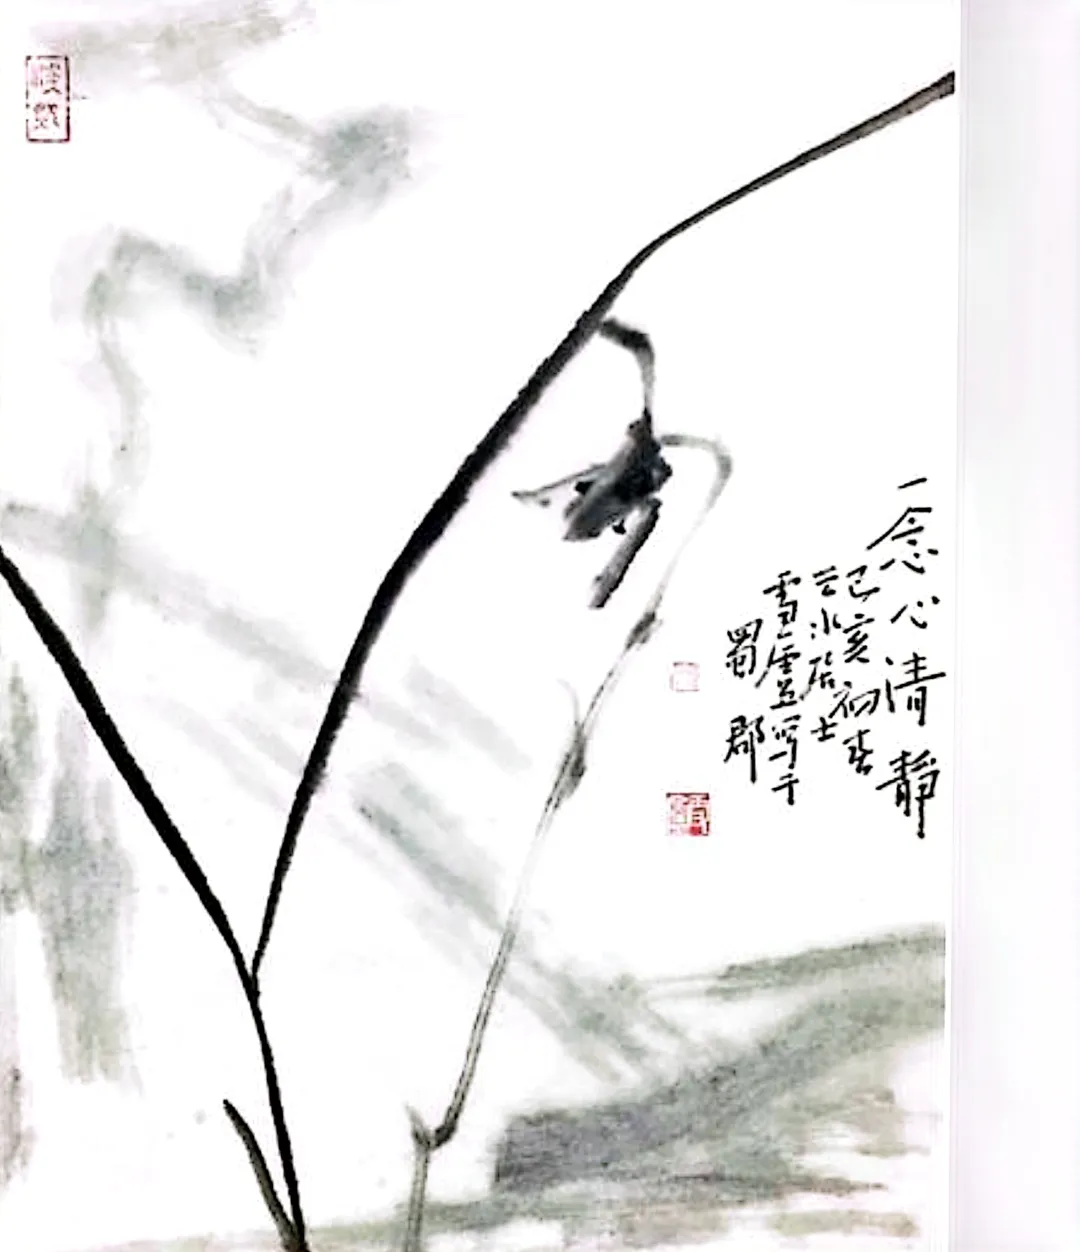 一念心清静
己亥初春
云水居士
雪虚写于
蜀郡